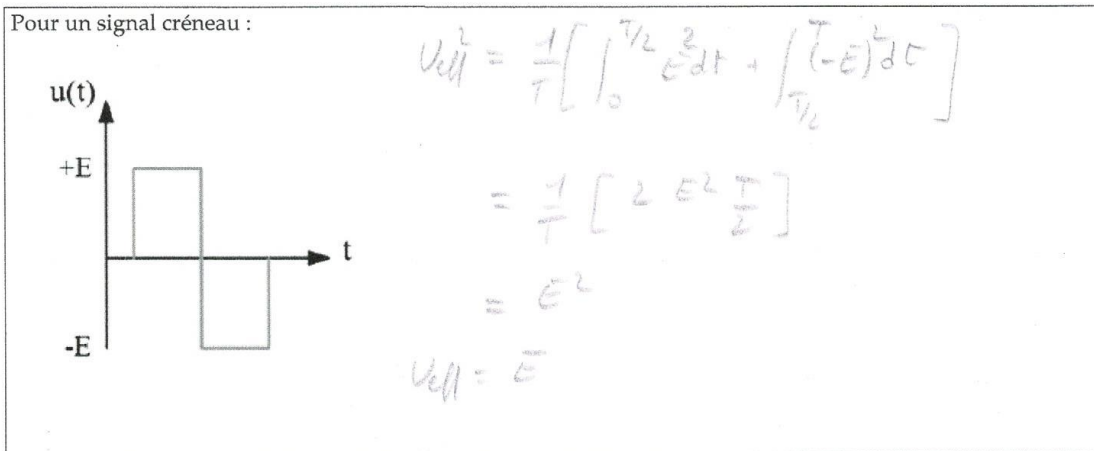 Pour un signal créneau :
u(t)
+E
t
-E
Ueff² = 1/T [ ∫₀^{T/2} E² dt + ∫_{T/2}^{T} (-E)² dt ]
= 1/T [ 2 E² T/2 ]
= E²
Ueff = E